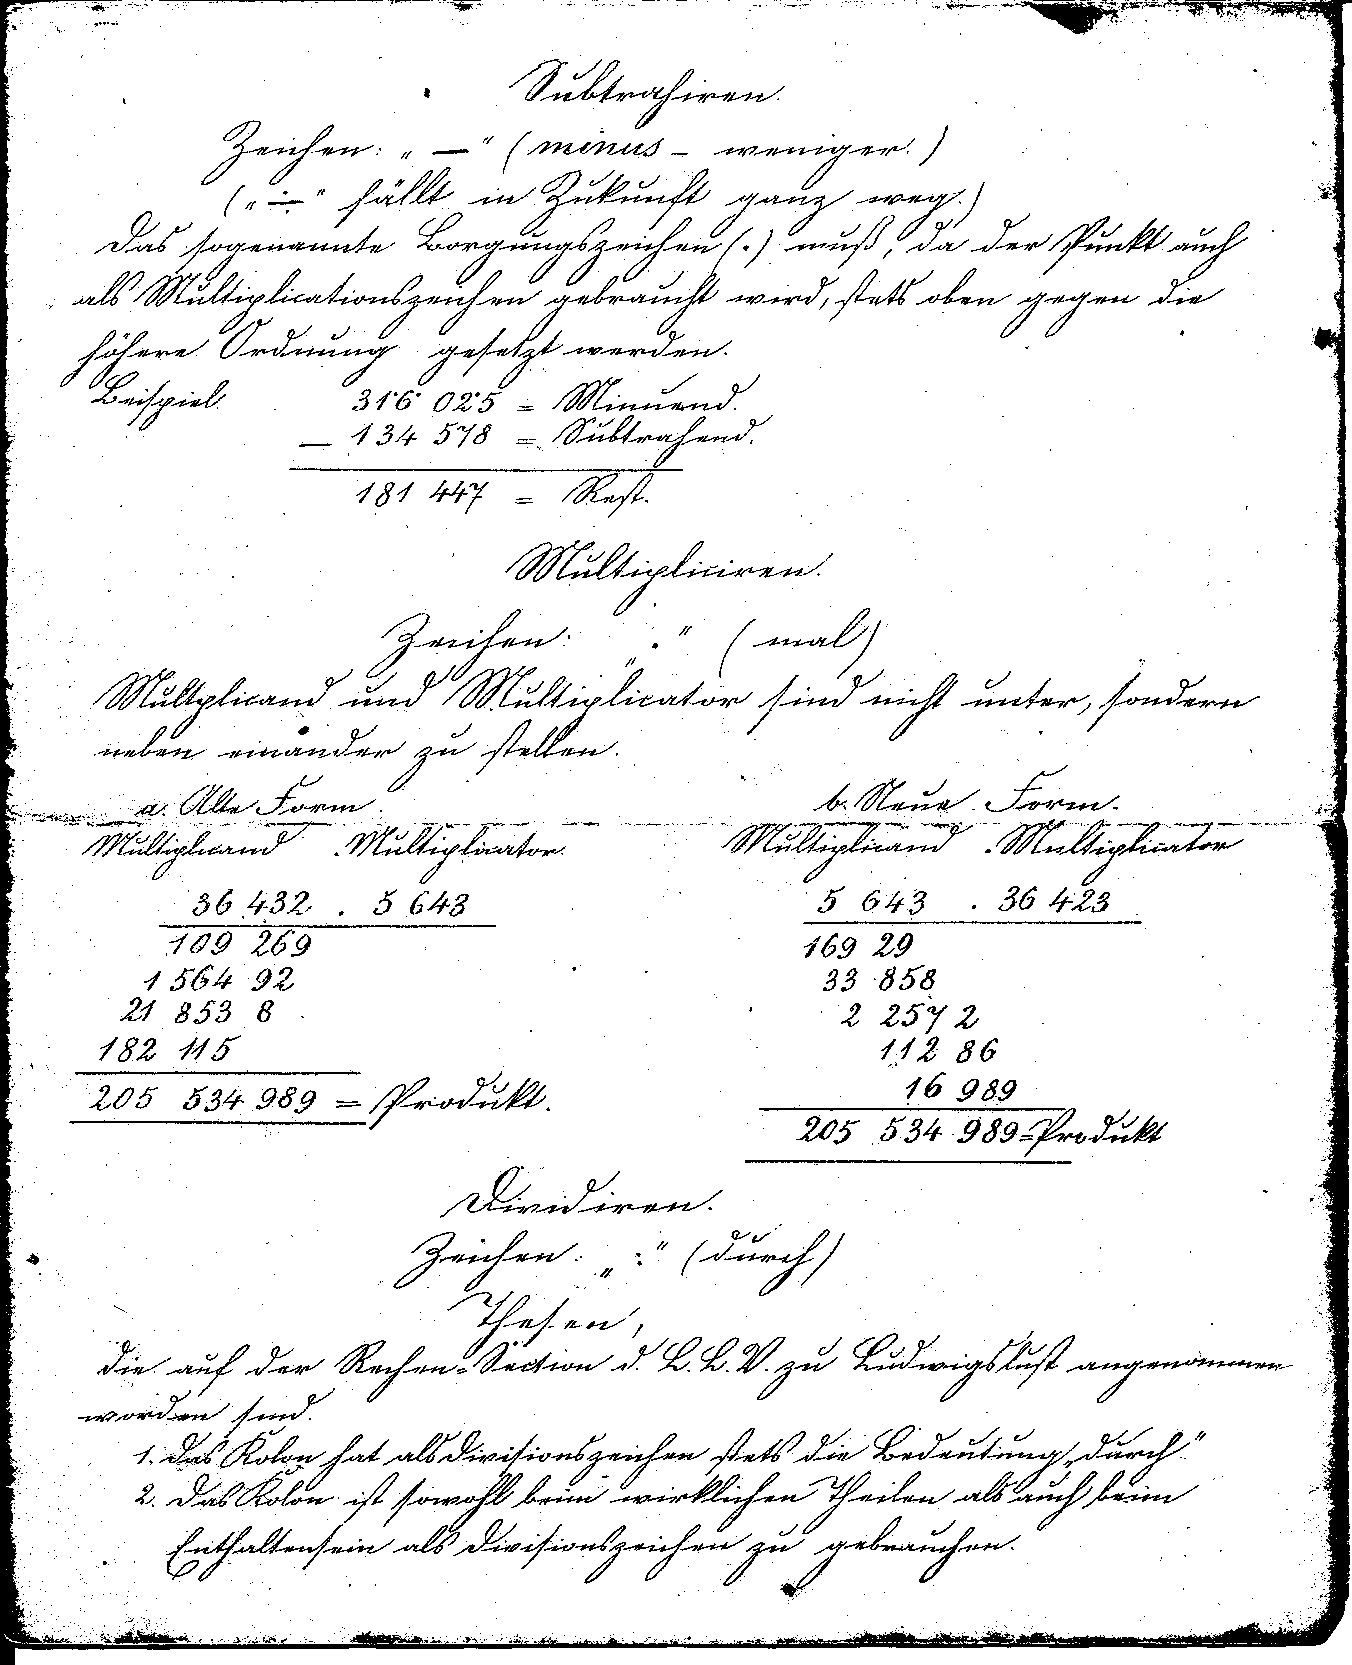 Subtrahiren.
Zeichen: „—“ (minus – weniger.)
(„÷“ fällt in Zukunft ganz weg.)
Das sogenannte Borgungszeichen (.) muß, da der Punkt auch
als Multiplicationszeichen gebraucht wird, stets oben gegen die
höhere Ordnung gesetzt werden.
Beispiel. 316 025 = Minuend.
— 134 578 = Subtrahend.
181 447 = Rest.
Multipliciren.
Zeichen: „.“ (mal)
Multplicand und Multiplicator sind nicht unter, sondern
neben einander zu stellen.
a. Alte Form. b. Neue Form.
Multiplicand . Multiplicator. Multiplicand . Multiplicator
36 432 . 5 643 5 643 . 36 423
109 269 169 29
1 564 92 33 858
21 853 8 2 257 2
182 115 112 86
205 534 989 = Produkt. 16 989
205 534 989 = Produkt
Dividiren.
Zeichen: „:“ (durch)
Thesen,
die auf der Rechen-Section d. L. L. V. zu Ludwigslust angenommen
worden sind.
1. Das Kolon hat als Divisionszeichen stets die Bedeutung „durch“.
2. Das Kolon ist sowohl beim wirklichen Theilen als auch beim
Enthaltensein als Divisionszeichen zu gebrauchen.